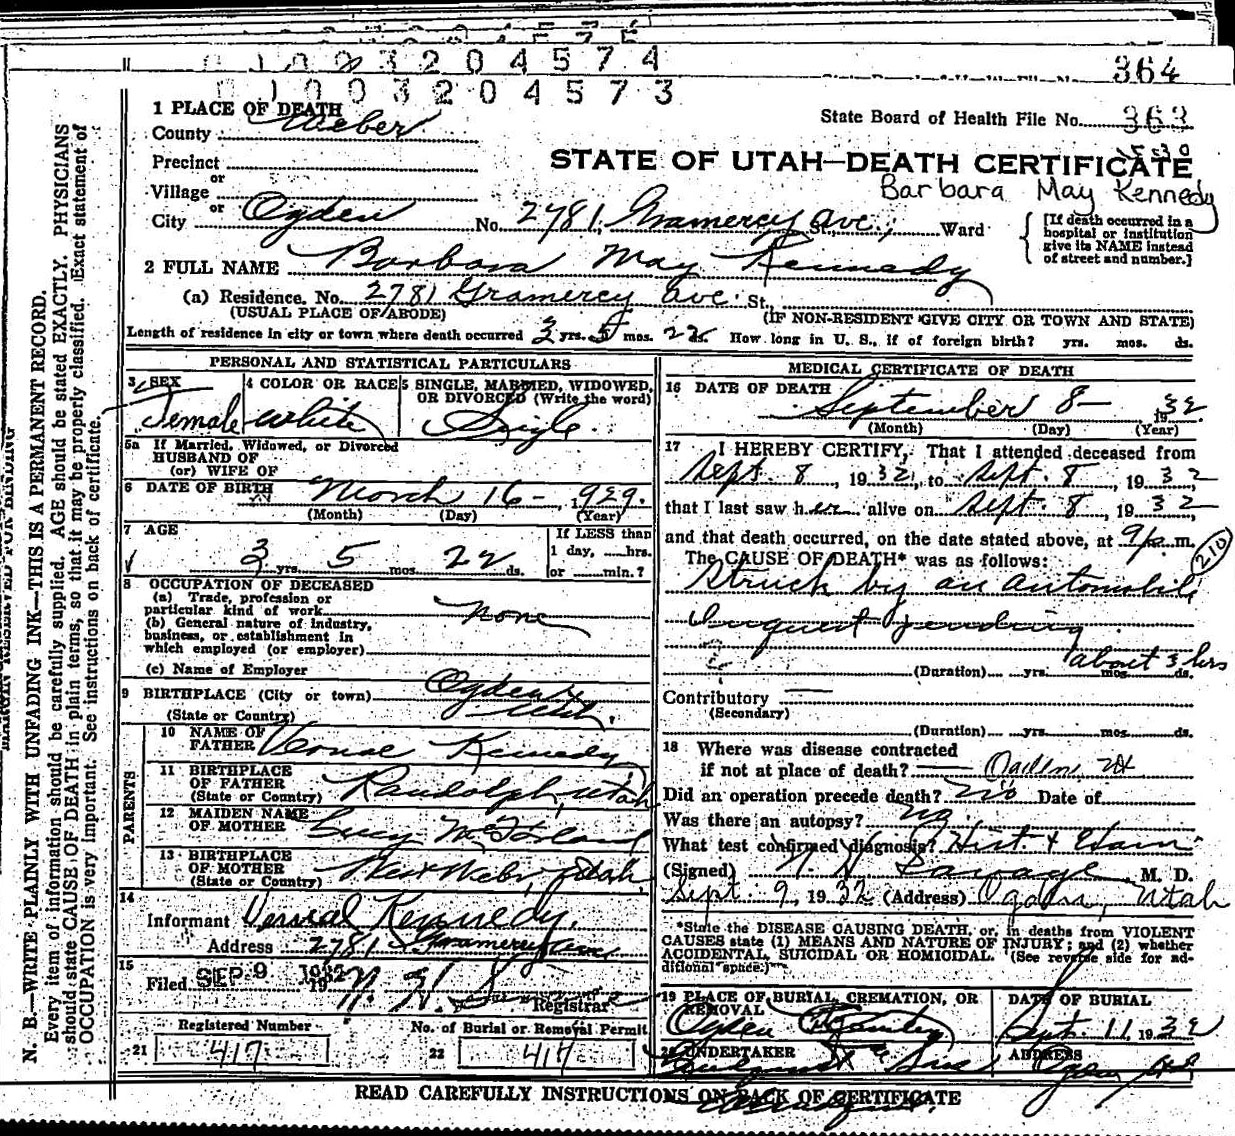 0 1 0 0 3 2 0 4 5 7 4
364
0 1 0 0 3 2 0 4 5 7 3
1 PLACE OF DEATH
County Weber
State Board of Health File No. 363
Precinct
or
STATE OF UTAH—DEATH CERTIFICATE
Village
Barbara May Kennedy
or
City Ogden No. 2781 Gramercy ave; Ward
[If death occurred in a hospital or institution give its NAME instead of street and number.]
2 FULL NAME Barbara May Kennedy
(a) Residence. No. 2781 Gramercy ave. St.,
(USUAL PLACE OF ABODE) (IF NON-RESIDENT GIVE CITY OR TOWN AND STATE)
Length of residence in city or town where death occurred 3 yrs. 5 mos. 22 ds. How long in U. S., if of foreign birth? yrs. mos. ds.
PERSONAL AND STATISTICAL PARTICULARS
3 SEX Female
4 COLOR OR RACE White
5 SINGLE, MARRIED, WIDOWED, OR DIVORCED (Write the word) Single.
5a If Married, Widowed, or Divorced
HUSBAND OF
(or) WIFE OF
6 DATE OF BIRTH March 16- 1929.
(Month) (Day) (Year)
7 AGE
3 yrs. 5 mos. 22 ds.
If LESS than
1 day, ....hrs.
or ......min.?
8 OCCUPATION OF DECEASED
(a) Trade, profession or
particular kind of work
none
(b) General nature of industry,
business, or establishment in
which employed (or employer)
(c) Name of Employer
9 BIRTHPLACE (City or town) Ogden
(State or Country) Utah.
PARENTS
10 NAME OF FATHER Kennedy
11 BIRTHPLACE OF FATHER (State or Country) Randolph, Utah
12 MAIDEN NAME OF MOTHER Lucy McFarland
13 BIRTHPLACE OF MOTHER (State or Country) West Weber, Utah
14
Informant Kennedy.
Address 2781 Gramercy ave
15
Filed SEP 9 1932 Registrar
Registered Number
21 417
No. of Burial or Removal Permit
22 417
MEDICAL CERTIFICATE OF DEATH
16 DATE OF DEATH
September 8- 1932
(Month) (Day) (Year)
17 I HEREBY CERTIFY, That I attended deceased from
Sept. 8, 1932, to Sept. 8, 1932,
that I last saw her alive on Sept. 8, 1932,
and that death occurred, on the date stated above, at 9 p.m.
210
The CAUSE OF DEATH* was as follows:
Struck by an automobile
Inquest pending.
about 3 hrs
(Duration) yrs. mos. ds.
Contributory
(Secondary)
(Duration) yrs. mos. ds.
18 Where was disease contracted
if not at place of death? Ogden, Ut
Did an operation precede death? no Date of
Was there an autopsy? no
What test confirmed diagnosis? Hist. & Exam
(Signed) M. D.
Sept. 9, 1932 (Address) Ogden, Utah
*State the DISEASE CAUSING DEATH, or, in deaths from VIOLENT
CAUSES state (1) MEANS AND NATURE OF INJURY; and (2) whether
ACCIDENTAL, SUICIDAL OR HOMICIDAL. (See reverse side for ad-
ditional space.)
19 PLACE OF BURIAL, CREMATION, OR
REMOVAL
Ogden
DATE OF BURIAL
Sept. 11, 1932
20 UNDERTAKER
ADDRESS
READ CAREFULLY INSTRUCTIONS ON BACK OF CERTIFICATE
N. B.—WRITE PLAINLY WITH UNFADING INK—THIS IS A PERMANENT RECORD.
Every item of information should be carefully supplied. AGE should be stated EXACTLY. PHYSICIANS
should state CAUSE OF DEATH in plain terms, so that it may be properly classified. Exact statement of
OCCUPATION is very important. See instructions on back of certificate.